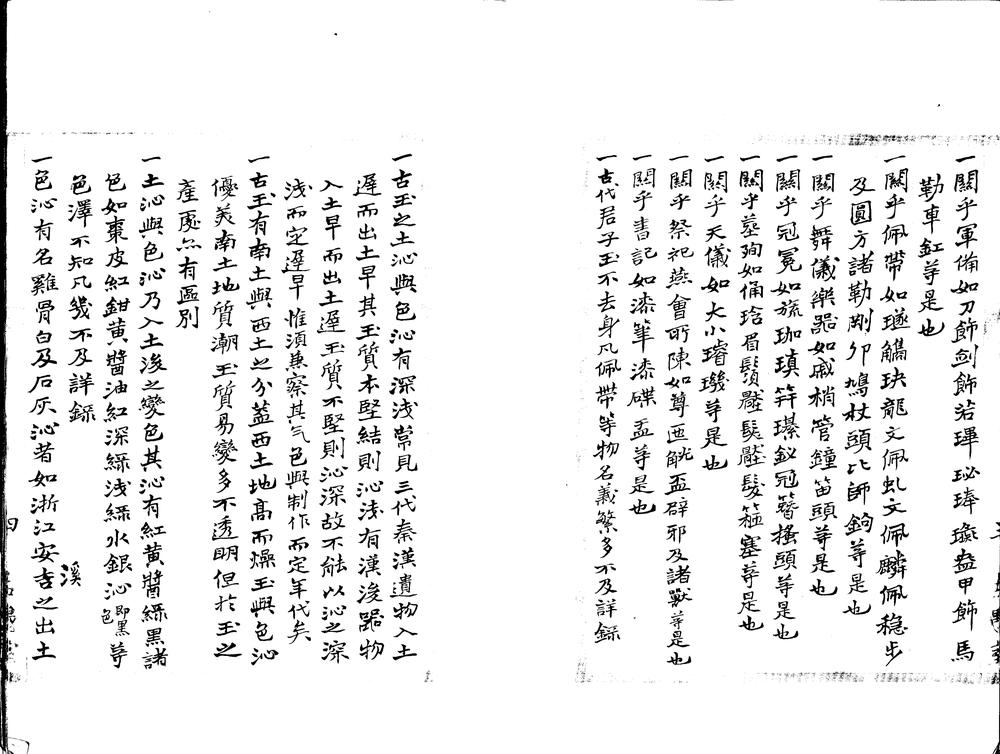 一關乎軍備如刀飾劍飾若琿珌琫璏盎甲飾馬
勒車釭等是也
一關乎佩帶如璲觿玦龍文佩虬文佩麟佩穩步
及圓方諸勒剛卯鳩杖頭比師鉤等是也
一關乎舞儀樂器如戚梢管鐘笛頭等是也
一關乎冠冕如旒珈瑱笄璂釵冠簪搔頭等是也
一關乎墓殉如俑琀眉鬚髭鬓髭髮箍塞等是也
一關乎天儀如大小璿璣等是也
一關乎祭祀燕會所陳如尊匜觥盃辟邪及諸獸等是也
一關乎書記如漆筆漆碟盂等是也
一古代君子玉不去身凡佩帶等物名義繁多不及詳錄
一古玉之土沁與色沁有深淺常見三代秦漢遺物入土
遲而出土早其玉質本堅結則沁淺有漢後賜物
入土早而出土遲玉質不堅則沁深故不能以沁之深
淺而定遲早惟須兼察其气色與制作而定年代矣
一古玉有南土與西土之分蓋西土地高而燥玉與色沁
優美南土地質潮玉質易變多不透明但於玉之
產處亦有區別
一土沁與色沁乃入土後之變色其沁有紅黃醬綠黑諸
色如棗皮紅鉗黃醬油紅深綠淺綠水銀沁即黑色等
色澤不知凡幾不及詳錄
溪
一色沁有名雞骨白及石灰沁者如浙江安吉之出土
四